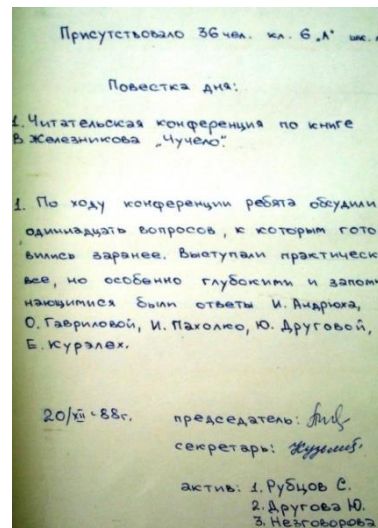 Присутствовало 36 чел. кл. 6 „А" шк.
Повестка дня:
1. Читательская конференция по книге
В. Железникова „Чучело".
1. По ходу конференции ребята обсудили
одиннадцать вопросов, к которым гото
вились заранее. Выступали практическ
все, но особенно глубокими и запом
нающимися были ответы И. Андрюха,
О. Гавриловой, И. Пахолко, Ю. Друговой,
Е. Курэлех.
20/XII-88г. председатель:
секретарь:
актив: 1. Рубцов С.
2. Другова Ю.
3. Незговорова